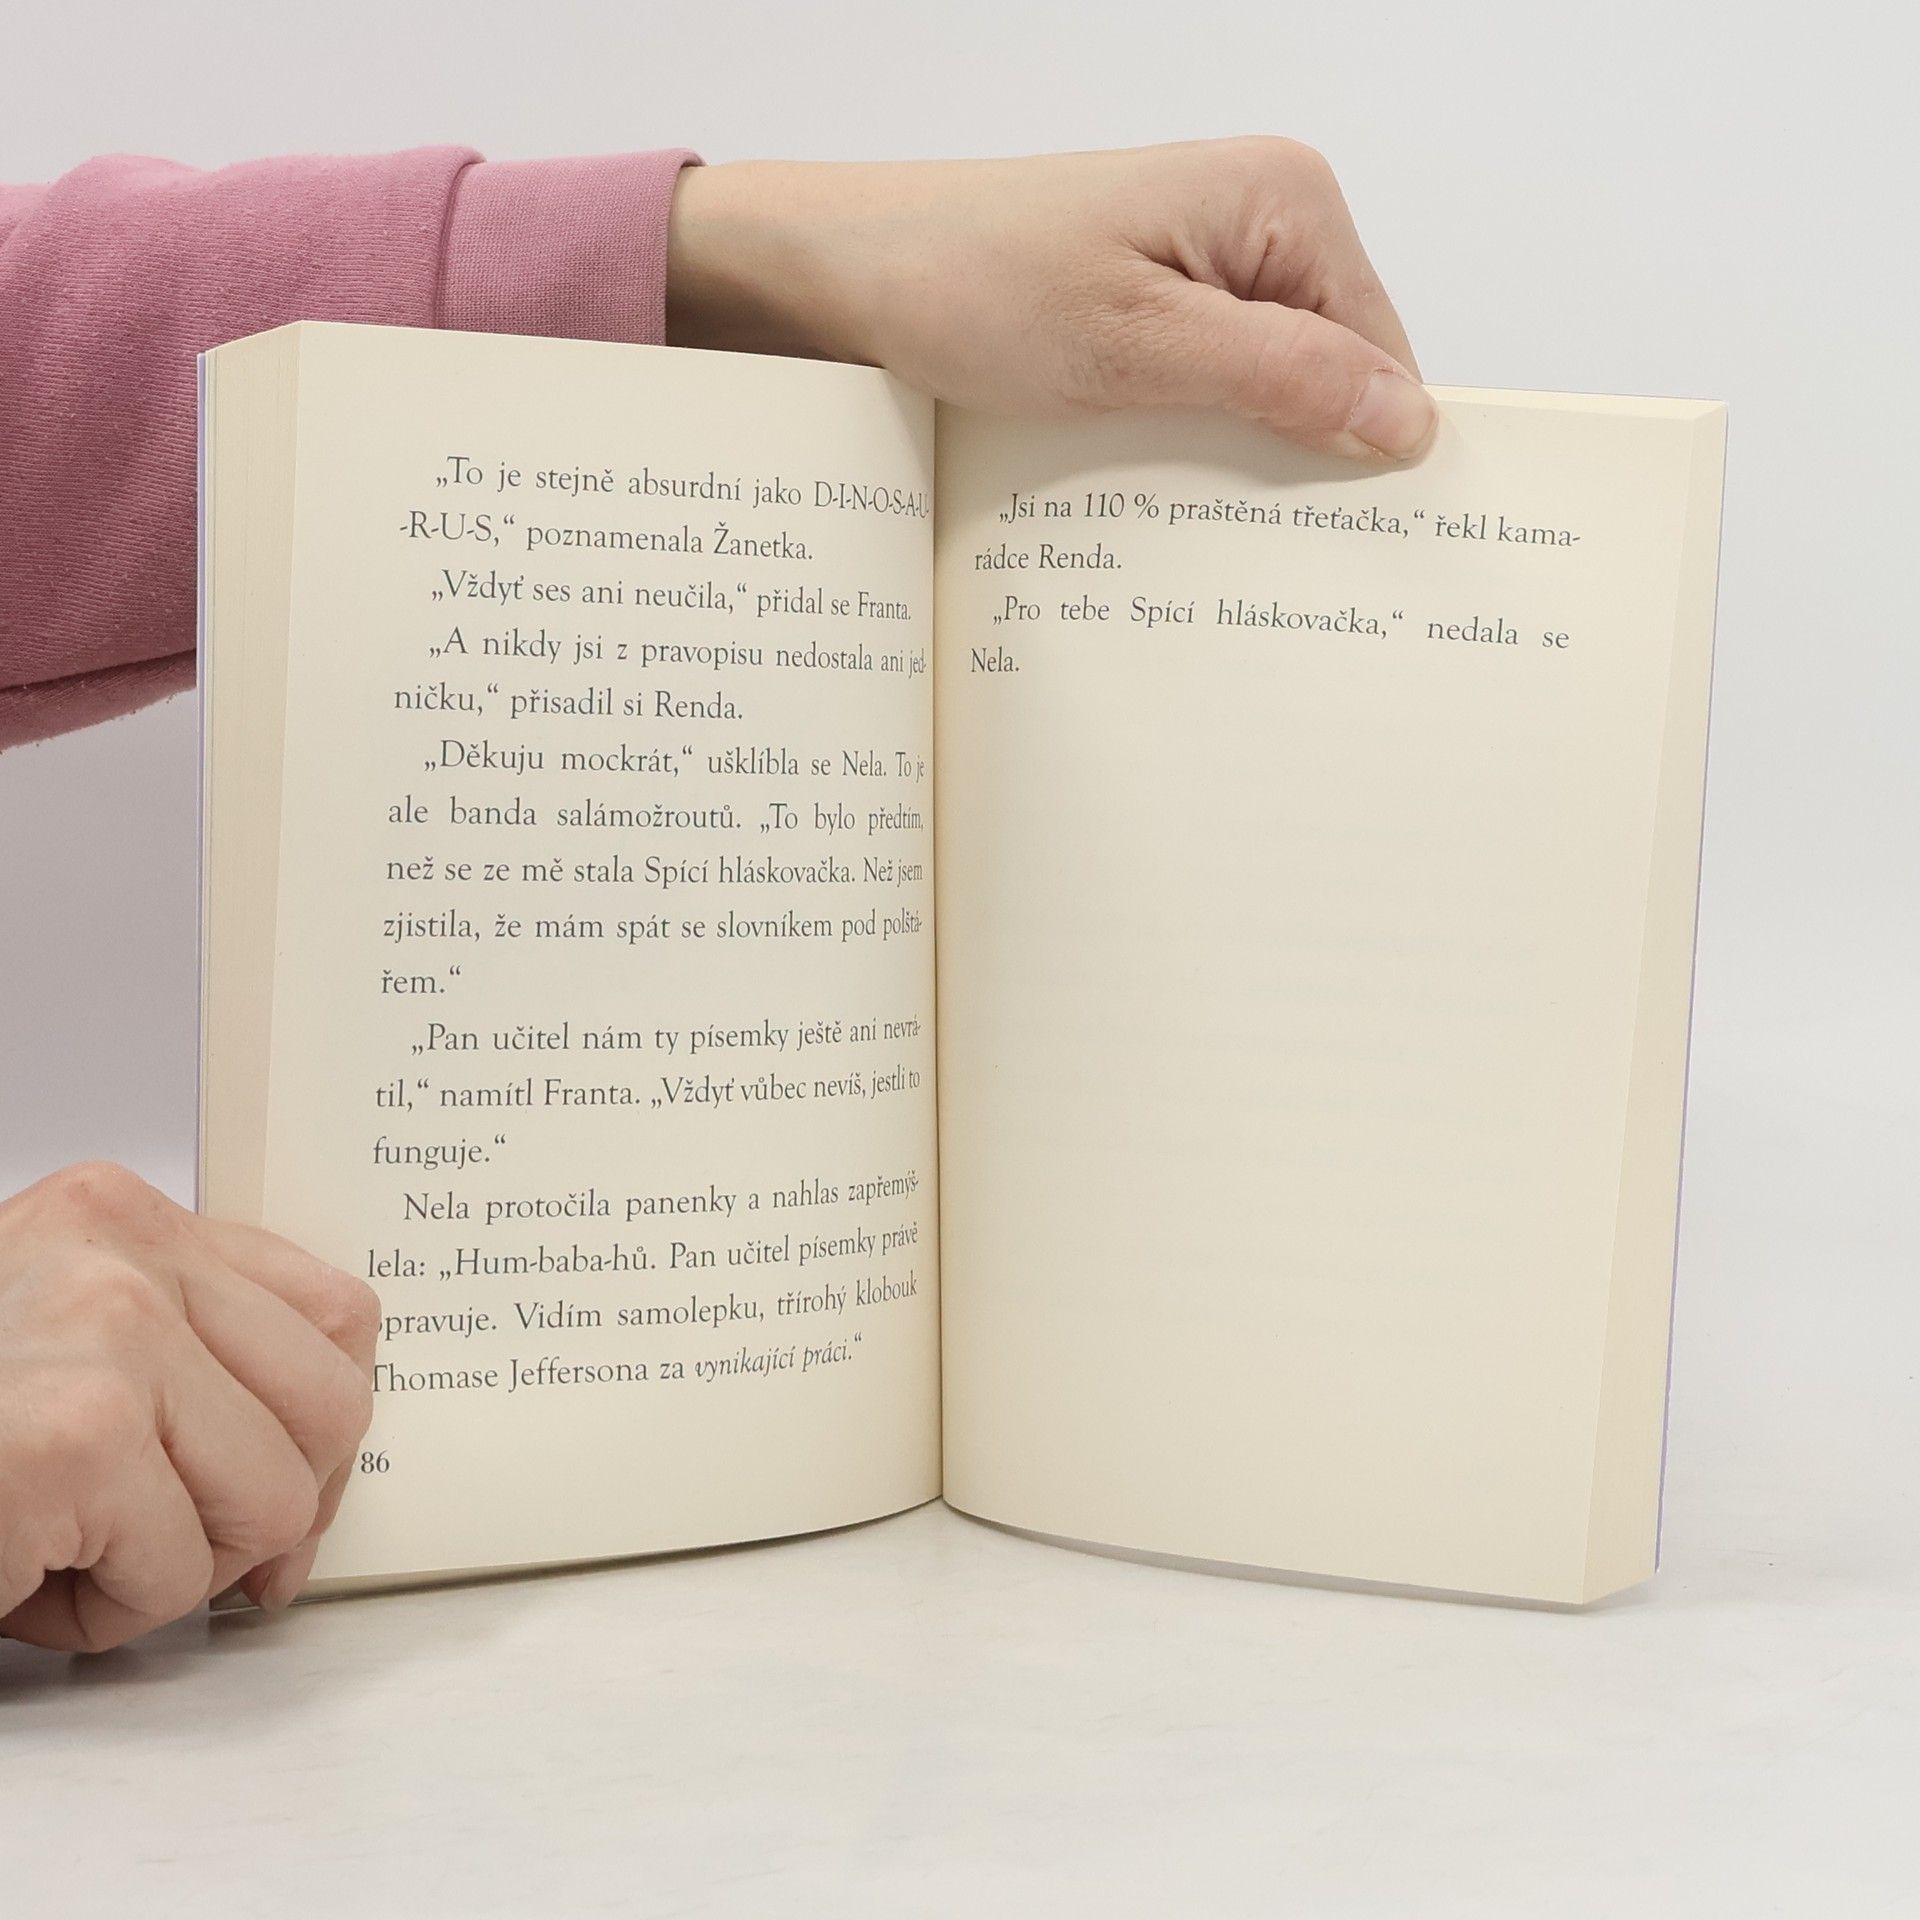 „To je stejně absurdní jako D-I-N-O-S-A-U-
-R-U-S,“ poznamenala Žanetka.
„Vždyť ses ani neučila,“ přidal se Franta.
„A nikdy jsi z pravopisu nedostala ani jed-
ničku,“ přisadil si Renda.
„Děkuju mockrát,“ ušklíbla se Nela. To je
ale banda salámožroutů. „To bylo předtím,
než se ze mě stala Spící hláskovačka. Než jsem
zjistila, že mám spát se slovníkem pod polštá-
řem.“
„Pan učitel nám ty písemky ještě ani nevrá-
til,“ namítl Franta. „Vždyť vůbec nevíš, jestli to
funguje.“
Nela protočila panenky a nahlas zapřemýš-
lela: „Hum-baba-hů. Pan učitel písemky právě
opravuje. Vidím samolepku, třírohý klobouk
Thomase Jeffersona za vynikající práci.“
86
„Jsi na 110 % praštěná třeťačka,“ řekl kama-
rádce Renda.
„Pro tebe Spící hláskovačka,“ nedala se
Nela.